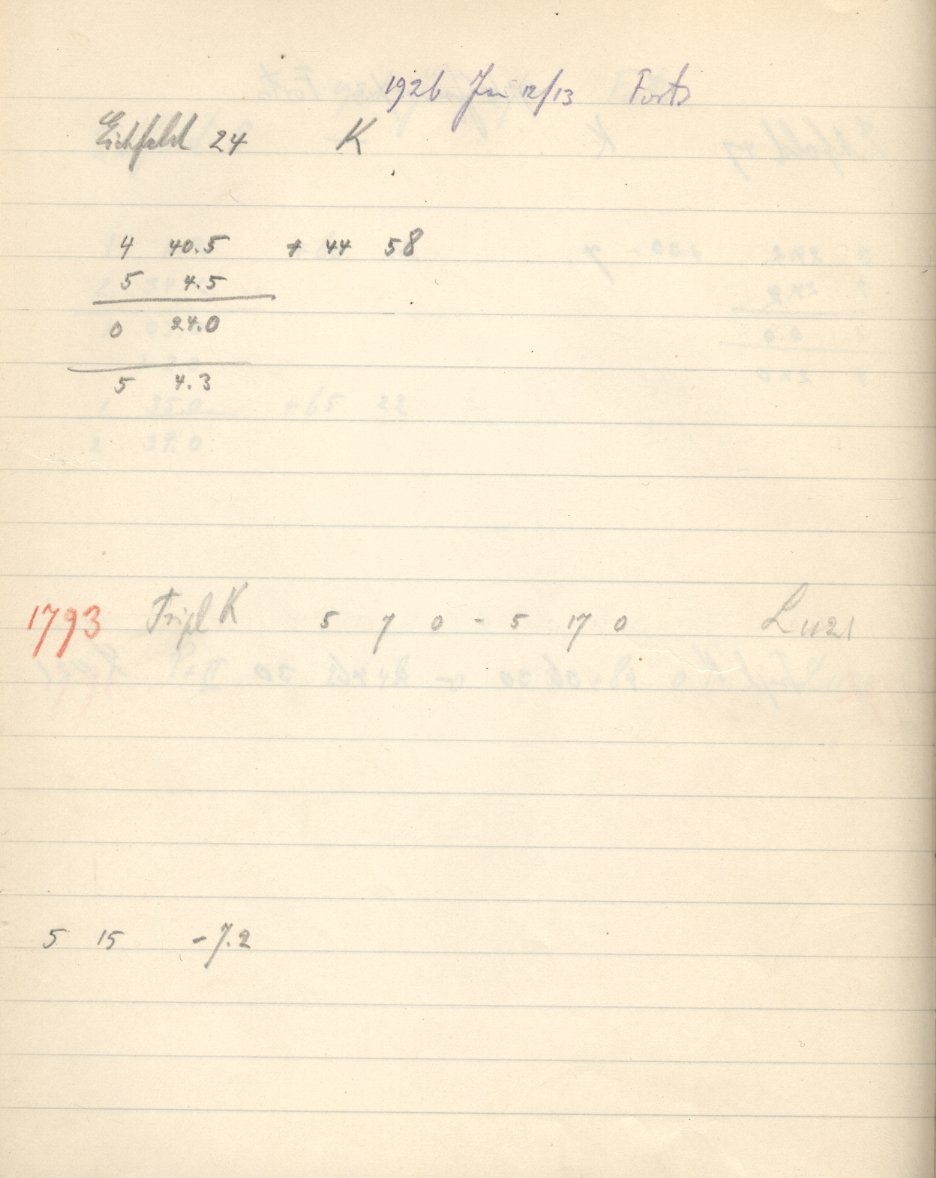 1926 Jan 12/13 Forts
Eichfeld 24 K
4 40.5 + 44 58
5 4.5
0 24.0
5 4.3
1793 Tripl K 5 7 0 - 5 17 0 L 1121
5 15 - 7.2